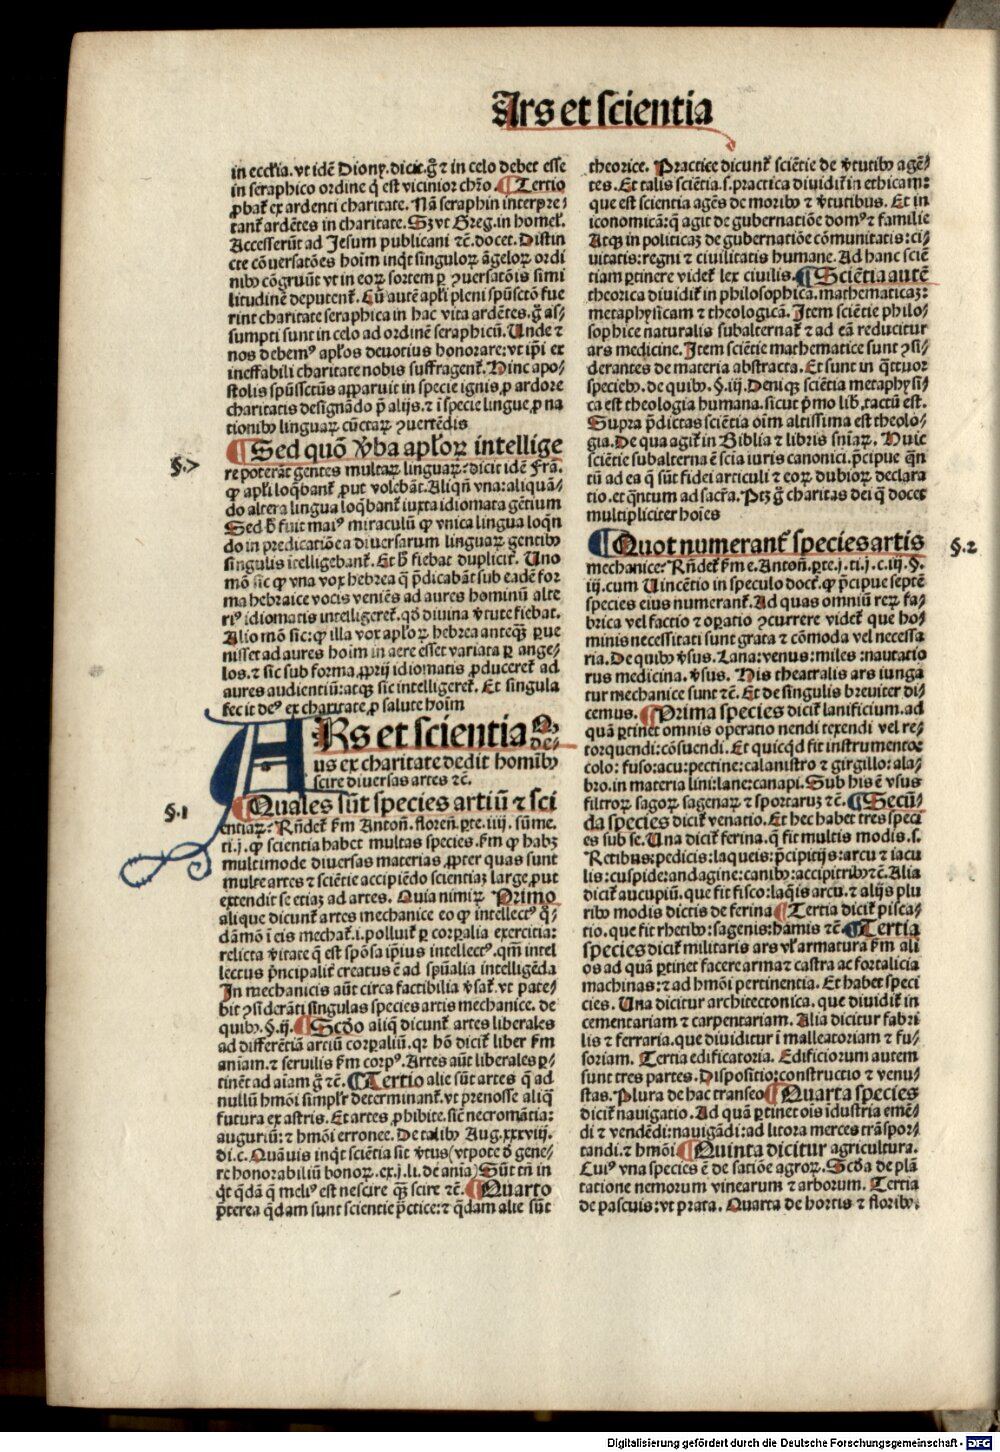 Ars et scientia
in eccl'ia. vt idē Dionỹ. dicit. g̊ ⁊ in celo debet esse
in seraphico ordine q̄ est vicinior chr̄o. ¶ Tertio
ꝓbat̄ ex ardenti charitate. Nā seraphin interpre⸗
tant̄ ardētes in charitate. Sꝫ vt Greg. in homel'.
Accesserūt ad Jesum publicani ⁊c̄. docet. Distin
cte cōuersatōes hoīm inq̇t singuloꝝ āgeloꝝ ordi
nibꝰ cōgruūt vt in eoꝝ sortem ꝑ ꝯuersatōis simi
litudinē deputent̄. Cū autē apl'i pleni spūsctō fue
rint charitate seraphica in hac vita ardētes. g̊ as⸗
sumpti sunt in celo ad ordinē seraphicū. Unde ⁊
nos debemꝰ apl'os deuotius honorare: vt ip̄i ex
ineffabili charitate nobis suffragent̄. Hinc apo⸗
stolis spūssctūs apparuit in specie ignis, ꝓ ardore
charitatis designādo p̄ alijs. ⁊ ī specie lingue, ꝓ na
tionibꝰ linguaꝝ cūctaꝝ ꝯuertēdis
§.7
¶ Sed quō v̄ba apl'oꝝ intellige
re poterāt gentes multaꝝ linguaꝝ: dicit idē Frā.
ꝙ apl'i loq̄bant̄ ꝓut volebāt. Aliqn̄ vna: aliquā⸗
do altera lingua loq̄bant̄ iuxta idiomata gētium
Sed h̄ fuit maiꝰ miraculū ꝙ vnica lingua loq̄n
do in predicatiōe a diuersarum linguaꝝ gentibꝰ
singulis ītelligebant̄. Et h̄ fiebat duplicit̄. Uno
mō sic ꝙ vna vox hebrea q̄ p̄dicabāt sub eadē for
ma hebraice vocis veniēs ad aures hominū alte
riꝰ idiomatis intelligeret̄. qd̄ diuina v̄tute fiebat.
Alio mō sic: ꝙ illa vox apl'oꝝ hebrea anteq̄ꝫ ꝑue
nisset ad aures hoīm in aere esset variata ꝑ ange⸗
los. ⁊ sic sub forma, ꝓprij idiomatis ꝓduceret̄ ad
aures audientiū: atqꝫ sic intelligeret̄. Et singula
fecit deꝰ ex charitate, ꝓ salute hoīm
ARs et scientia
de⸗
us ex charitate dedit homībꝰ
scire diuersas artes ⁊c̄.
§.1
¶ Quales sūt species artiū ⁊ sci
entiaꝝ: Rn̄det̄ ẜm Anton̄. floren̄. ꝑte. iiij. sūme.
ti. j. ꝙ scientia habet multas species. ẜm ꝙ habꝫ
multimode diuersas materias, ꝓpter quas sunt
multe artes ⁊ sciētie accipiēdo scientiaꝫ large, ꝓut
extendit se etiaꝫ ad artes. Quia nimiꝝ Primo
alique dicunt̄ artes mechanice eo ꝙ intellectꝰ q̇⸗
dāmō ī eis mechat̄. i. polluit̄ ꝑ corꝑalia exercitia:
relicta v̄itate q̄ est spōsa ip̄ius intellectꝰ. qm̄ intel
lectus p̄ncipalit̄ creatus ē ad spūalia intelligēda
In mechanicis aūt circa factibilia v̄sat̄. vt pate⸗
bit ꝯsiderāti singulas species artis mechanice. de
quibꝰ. §. ij. ¶ Scd̄o aliq̄ dicunt̄ artes liberales
ad differētiā artiū corꝑaliū. qr hō dicit̄ liber ẜm
anīam. ⁊ seruilis ẜm corpꝰ. Artes aūt liberales ꝑ⸗
tinēt ad aīam g̊ ⁊c̄. ¶ Tertio alie sūt artes q̄ ad
nullū hmōi simpl'r determinant̄. vt prenosse aliq̄
futura ex astris. Et artes ꝓhibite. sic̄ necromātia:
auguriū: ⁊ hmōi erronee. De talibꝰ Aug. xxxviij.
di. c. Quāuis inq̇t sciētia sit v̄tus (vtpote d̄ gene⸗
re honorabiliū honoꝝ. ex. j. li. de anīa) Sūt tn̄ in
q̇t q̄dā q̄ meliꝰ est nescire q̄ꝫ scire ⁊c̄. ¶ Quarto
p̄terea q̄dam sunt scientie p̄ctice: ⁊ q̄dam alie sūt
theorice. Practice dicunt̄ sciētie de v̄tutibꝰ agē⸗
tes. Et talis sciētia. s. practica diuidit̄ in ethicam:
que est scientia agēs de moribꝰ ⁊ v̄tutibus. Et in
iconomicā: q̄ agit de gubernatiōe domꝰ ⁊ familie
Atqꝫ in politicaꝫ de gubernatiōe cōmunitatis: ci⸗
uitatis: regni ⁊ ciuilitatis humane. Ad hanc sciē
tiam ꝑtinere videt̄ lex ciuilis. ¶ Sciētia autē
theorica diuidit̄ in philosophicā. mathematicaꝫ:
metaphysicam ⁊ theologicā. Item sciētie philo⸗
sophice naturalis subalternat̄ ⁊ ad eā reducitur
ars medicine. Item sciētie mathematice sunt ꝯsi⸗
derantes de materia abstracta. Et sunt in q̄ttuor
speciebꝰ. de quibꝰ. §. iij. Deniqꝫ sciētia metaphysi⸗
ca est theologia humana. sicut p̄mo lib̄, tactū est.
Supra p̄dictas sciētias oīm altissima est theolo⸗
gia. De qua agit̄ in Biblia ⁊ libris sn̄iaꝝ. Huic
sciētie subalterna ē scīa iuris canonici. p̄cipue q̄n
tū ad ea q̄ sūt fidei articuli ⁊ eoꝝ dubioꝝ declara
tio. et q̄ntum ad sacr̄a. Ptꝫ g̊ charitas dei q̄ docet
multipliciter hoīes
§.2
¶ Quot numerant̄ species artis
mechanice: Rn̄det̄ ẜm e. Anton̄. ꝑte. j. ti. j. c. iij. §.
iij. cum Uincētio in speculo doct̄. ꝙ p̄cipue septē
species eius numerant̄. Ad quas omniū reꝝ fa⸗
brica vel factio ⁊ oꝑatio ꝯcurrere videt̄ que ho⸗
minis necessitati sunt grata ⁊ cōmoda vel necessa
ria. De quibꝰ v̄sus. Lana: venus: miles: nauta tio
rus medicina. v̄sus. His theatralis ars iunga
tur mechanice sunt ⁊c̄. Et de singulis breuiter di⸗
cemus. ¶ Prima species dicit̄ lanificium. ad
quā ꝑtinet omnis operatio nendi texendi vel re⸗
torquendi: cōsuendi. Et quicq̇d fit instrumento:
colo: fuso: acu: pectine: calanistro ⁊ girgillo: ala⸗
bro. in materia lini: lane: canapi. Sub his ē vsus
filtroꝝ sagoꝝ sagenaꝝ ⁊ sportaruꝫ ⁊c̄. ¶ Secū⸗
da species dicit̄ venatio. Et hec habet tres speci
es sub se. Una dicit̄ ferina. q̄ fit multis modis. s.
Retibus: pedicis: laqueis: p̄cipitijs: arcu ⁊ iacu
lis: cuspide: andagine: canibꝰ: accipitribꝰ ⁊c̄. Alia
dicit̄ aucupiū. que fit fisco: laq̄is arcu. ⁊ alijs plu
ribꝰ modis dictis de ferina ¶ Tertia dicit̄ pisca⸗
tio. que fit rhetibꝰ: sagenis: hamis ⁊c̄. ¶ Tertia
species dicit̄ militaris ars vl' armatura ẜm ali
os ad quā ꝑtinet facere arma ⁊ castra ac fortalicia
machinas: ⁊ ad hmōi pertinentia. Et habet speci
cies. Una dicitur architectonica. que diuidit̄ in
cementariam ⁊ carpentariam. Alia dicitur fabri
lis ⁊ ferraria. que diuiditur ī malleatoriam ⁊ fu⸗
soriam. Tertia edificatoria. Edificiorum autem
sunt tres partes. Dispositio: constructio ⁊ venu⸗
stas. Plura de hac transeo ¶ Quarta species
dicit̄ nauigatio. Ad quā ꝑtinet oīs īdustria emē⸗
di ⁊ vendēdi: nauigādi: ad litora merces trāspor⸗
tandi. ⁊ hmōi ¶ Quinta dicitur agricultura.
Cuiꝰ vna species ē de satiōe agroꝝ. Scd̄a de plā
tatione nemorum vinearum ⁊ arborum. Tertia
de pascuis: vt prata. Quarta de hortis ⁊ floribꝰ.
Digitalisierung gefördert durch die Deutsche Forschungsgemeinschaft - DFG